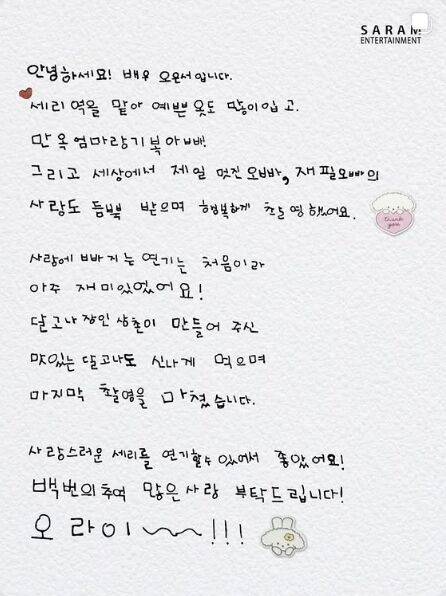 SARAM
ENTERTAINMENT
안녕하세요! 배우 오은서입니다.
세리 역을 맡아 예쁜 옷도 많이 입고.
만옥 엄마랑 기복 아빠!
그리고 세상에서 제일 멋진 오빠, 재필오빠의
사랑도 듬뿍 받으며 행복하게 촬영했어요.
thank you
사랑에 빠지는 연기는 처음이라
아주 재미있었어요!
달고나 장인 삼촌이 만들어 주신
맛있는 달고나도 신나게 먹으며
마지막 촬영을 마쳤습니다.
사랑스러운 세리를 연기할수 있어서 좋았어요!
백번의 추억 많은 사랑 부탁드립니다!
오 라이~~!!!